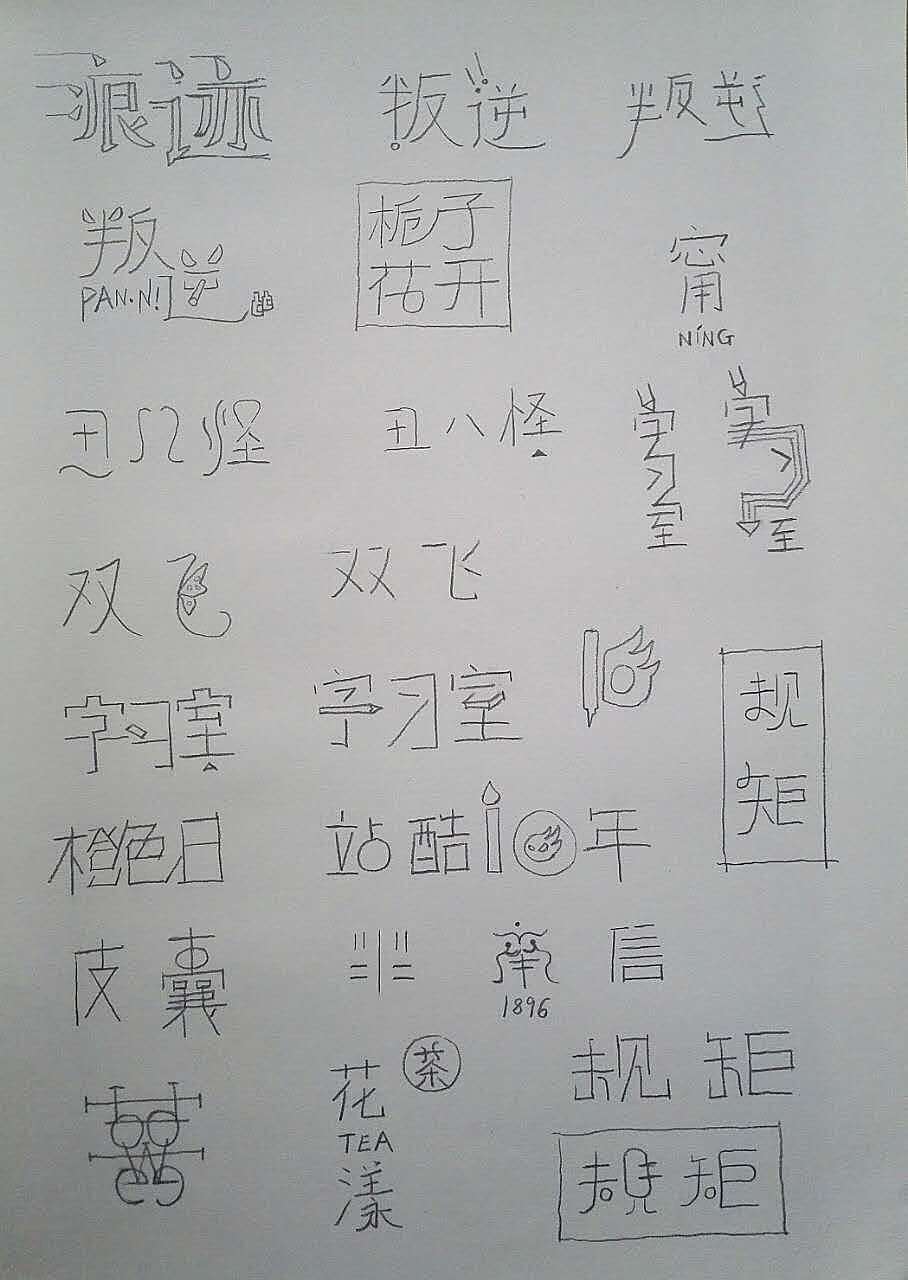 痕迹
叛逆
叛逆
叛逆
PAN·NI
栀子
花开
甯
NÍNG
丑八怪
丑八怪
学习室
学习室
双飞
双飞
字习室
字习室
规矩
橙色日
站酷10年
皮囊
非
信
1896
花茶
TEA
漾
规矩
规矩